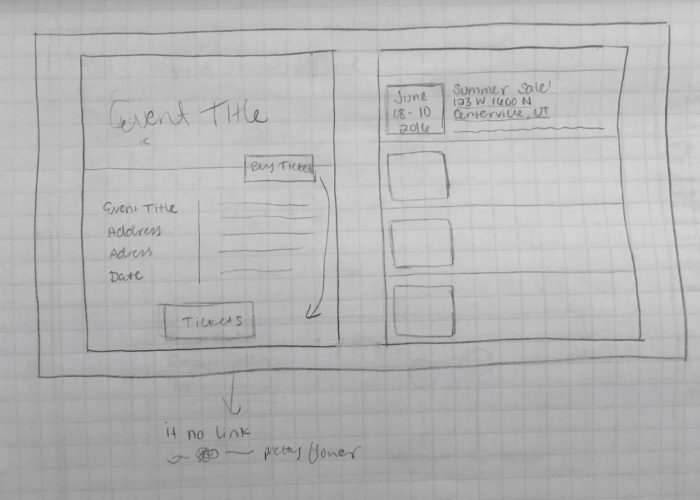 Event Title
Buy Tickets
Event Title
Address
Adress
Date
Tickets
June
08-10
2016
Summer Sale!
123 W 1600 N
Centerville, UT
if no link
pretty flower